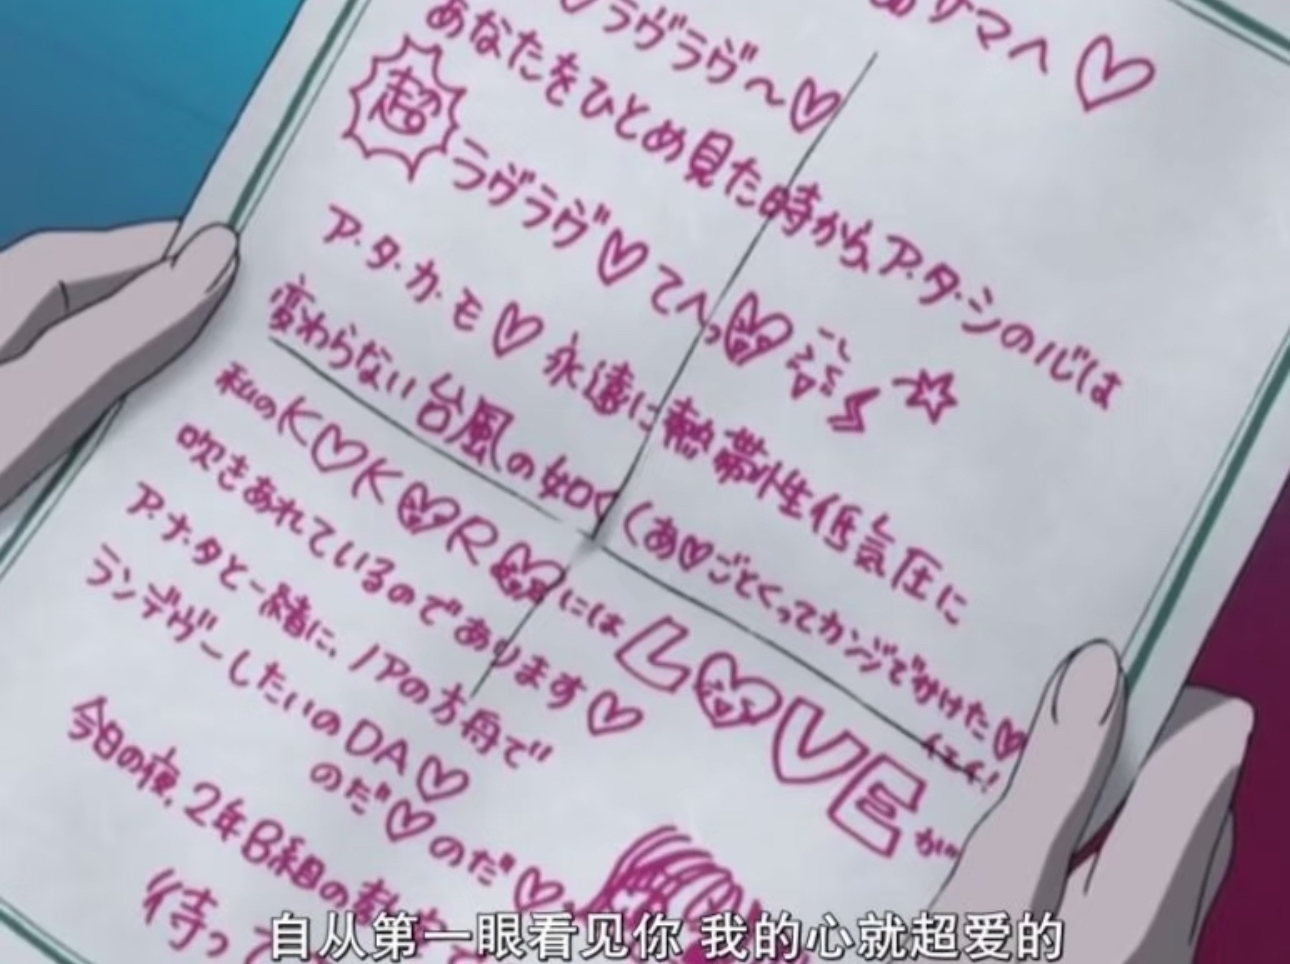 サマへ♡
♡ラヴラヴ〜♡
あなたをひとめ見た時から、ア・タ・シの心は
超ラヴラヴ♡てへっ
ア・タ・カ・モ♡永遠に熱帯性低気圧に
変わらない台風の如く(あ♡ごとくってカンジでかけた♡
イエイ!
私のK♡K♡R♡には LOVE が
吹きあれているのであります♡
ア・ナ・タと一緒に、ノアの方舟で
ランデヴーしたいのDA♡
のだ♡のだ♡
今日の夜、2年B組の教
待って
自从第一眼看见你 我的心就超爱的